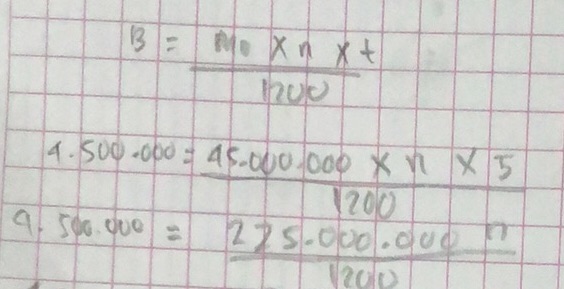 B = Mo x n x t
1200
4.500.000 = 45.000.000 x n x 5
1200
4.500.000 = 225.000.000 n
1200